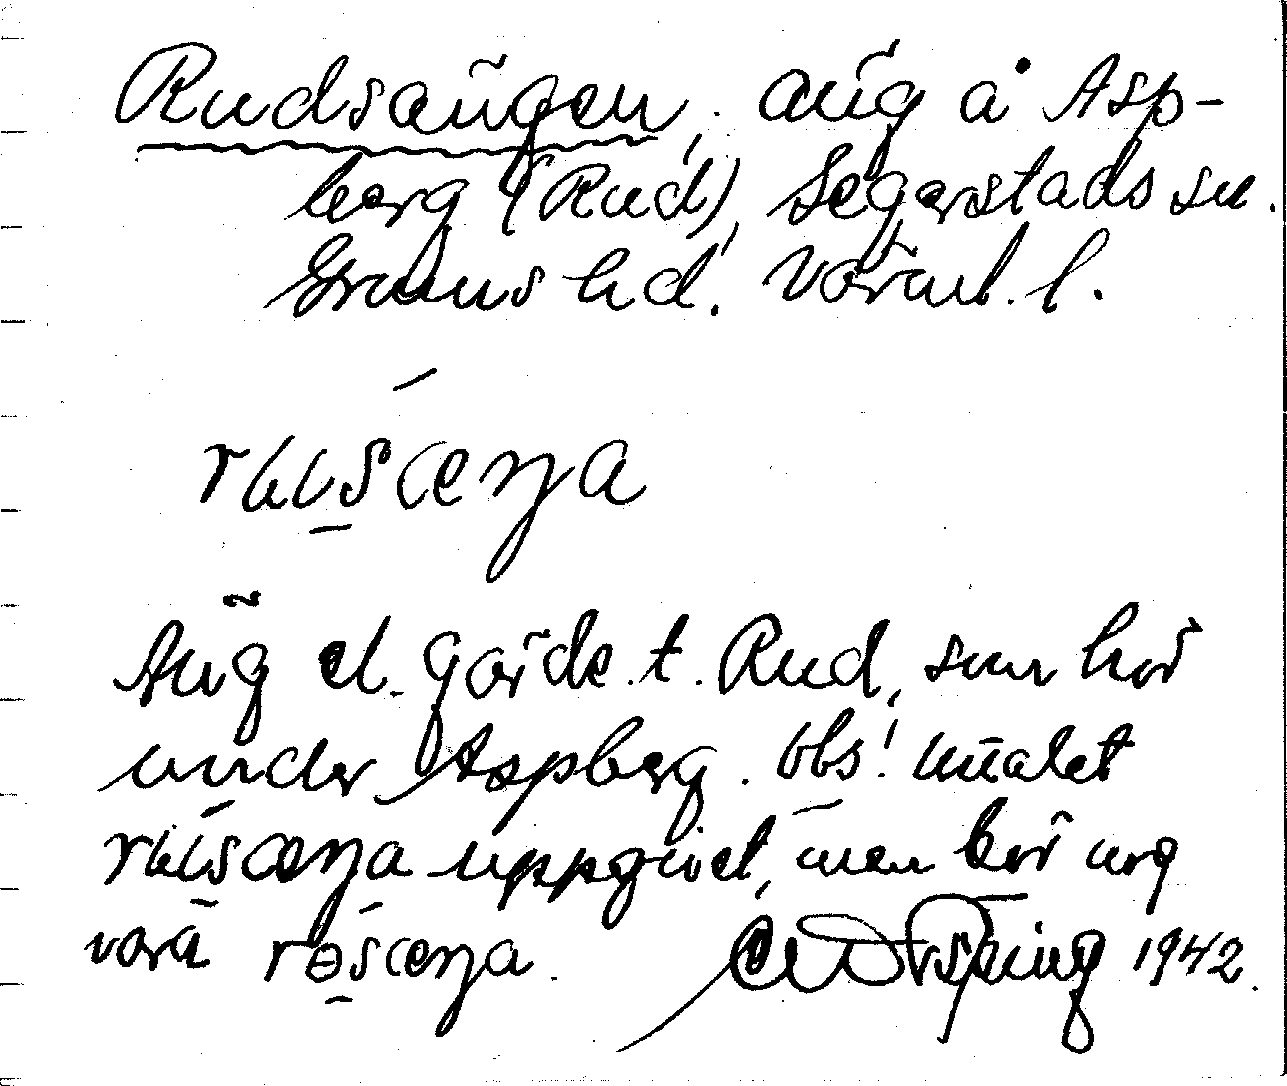 Rudsängen, äng å Asp-
berg (Rud), Segerstads sn.
Grums hd. Värml. l.
ruusæŋa
Äng el. gärde t. Rud, som hör
under Aspberg. Obs! uttalet
ruusæŋa uppgivet, men bör nog
vara rɵsæŋa. 1942.